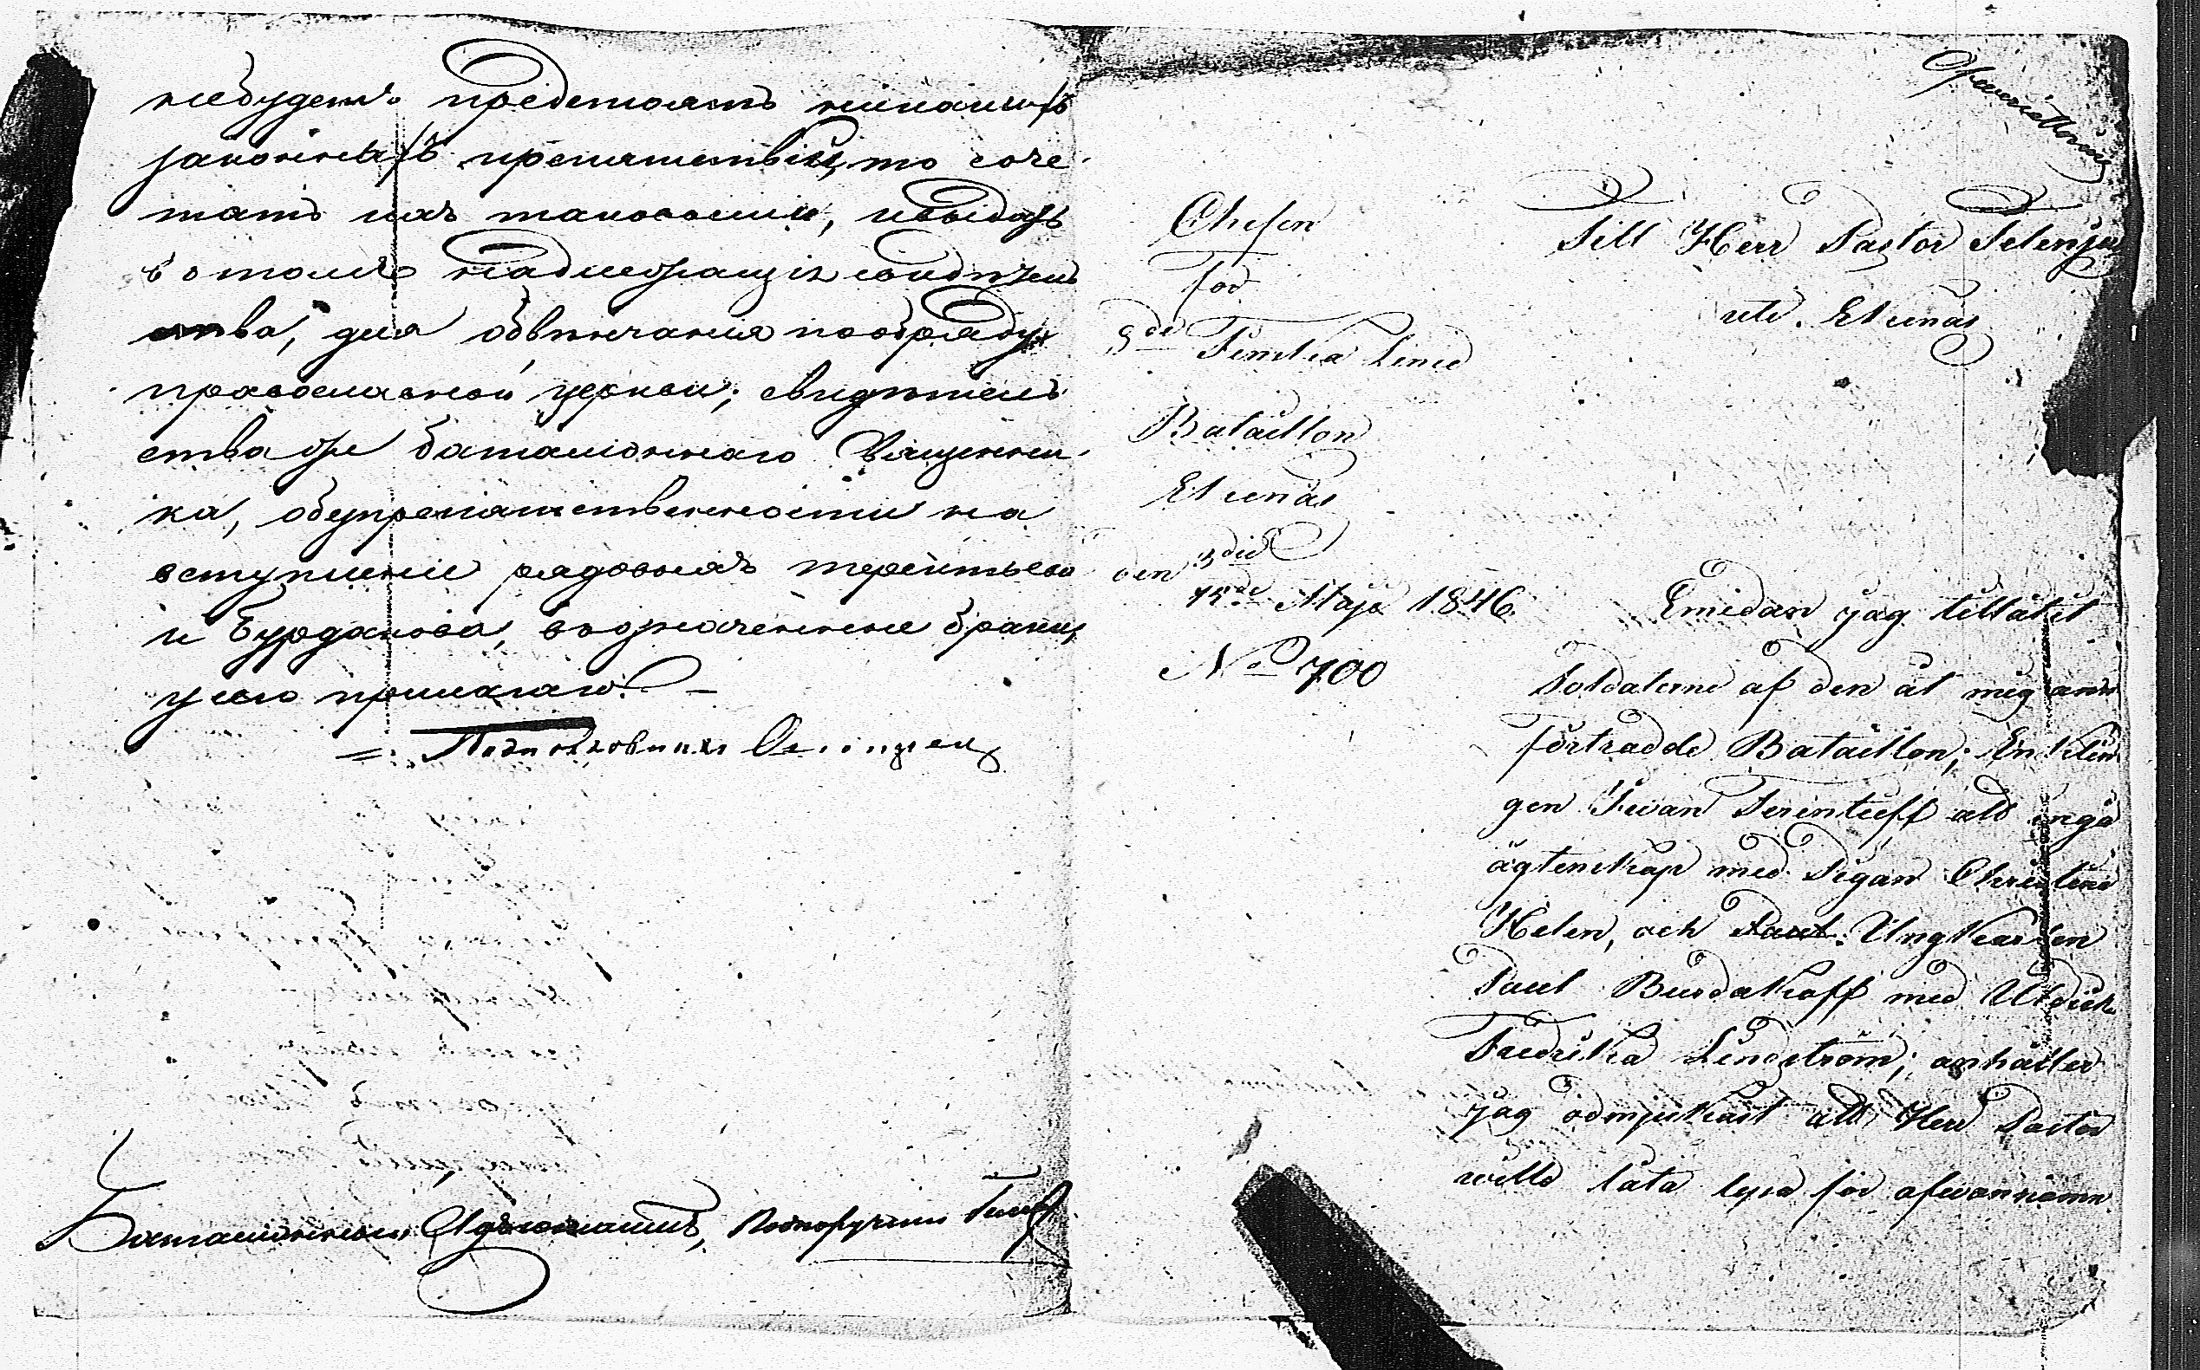 небудетъ предстоять никакихъ
законныхъ препятствій, то соче-
тать ихъ таковыми, и выдать
въ томъ надлежащія свидѣтель
ства, для обвѣнчанія по обряду
православной церкви; свидѣтель
ства же баталіоннаго Священни-
ка, о безпрепятственности на
вступленіе рядовыхъ Терентьева
и Бурдакова, въ означенные браки,
у сего прилагаю. —
Подполковникъ
Баталіонный Адъютантъ, Подпоручикъ
Öfversättning
Chefen
för
5de Finska Linie
Bataillon
Ekenäs
den 3die
15de Maji 1846.
No 700
Till Herr Pastor
uti Ekenäs
Emedan jag tillåtit
Soldaterne af den åt mig ann
förtrodde Bataillon; Enklin
gen Iwan Terentieff att ingå
ägtenskap med Pigan Christina
Helen, och Ungkarlen
Paul Burdakoff med Uldrika
Fredrika Lindström; anhåller
jag ödmjukast att Herr Pastor
wille låta lysa för ofwannämn